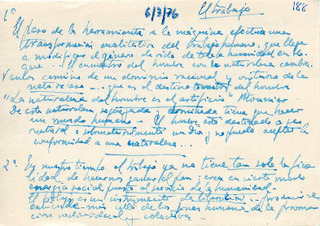 6/3/76 El trabajo 188
1º
El paso de la herramienta a la máquina efectúa una
transformación cualitativa del trabajo humano, que llega
a modificar el género de vida de la humanidad en blo-
que... El encuentro del hombre con la naturaleza cambia.
Vamos camino de un dominio racional y unitario de la
naturaleza... que es el destino terrestre del hombre
"La naturaleza del hombre es el artificio" Mounier
De esta naturaleza aceptada y dominada tiene que hacer
un mundo humano. El hombre está destinado a ser
natural o sobrenaturalmente un dios y no puede aceptar la
conformidad a una naturaleza...
2º. En nuestro tiempo el trabajo ya no tiene tan solo la fina-
lidad de ganarse el pan: crea en cierto modo
energía social puesta al servicio de la humanidad.
El trabajo es un instrumento de liberación
más allá de los fines humanos de la promo-
ción individual y colectiva.